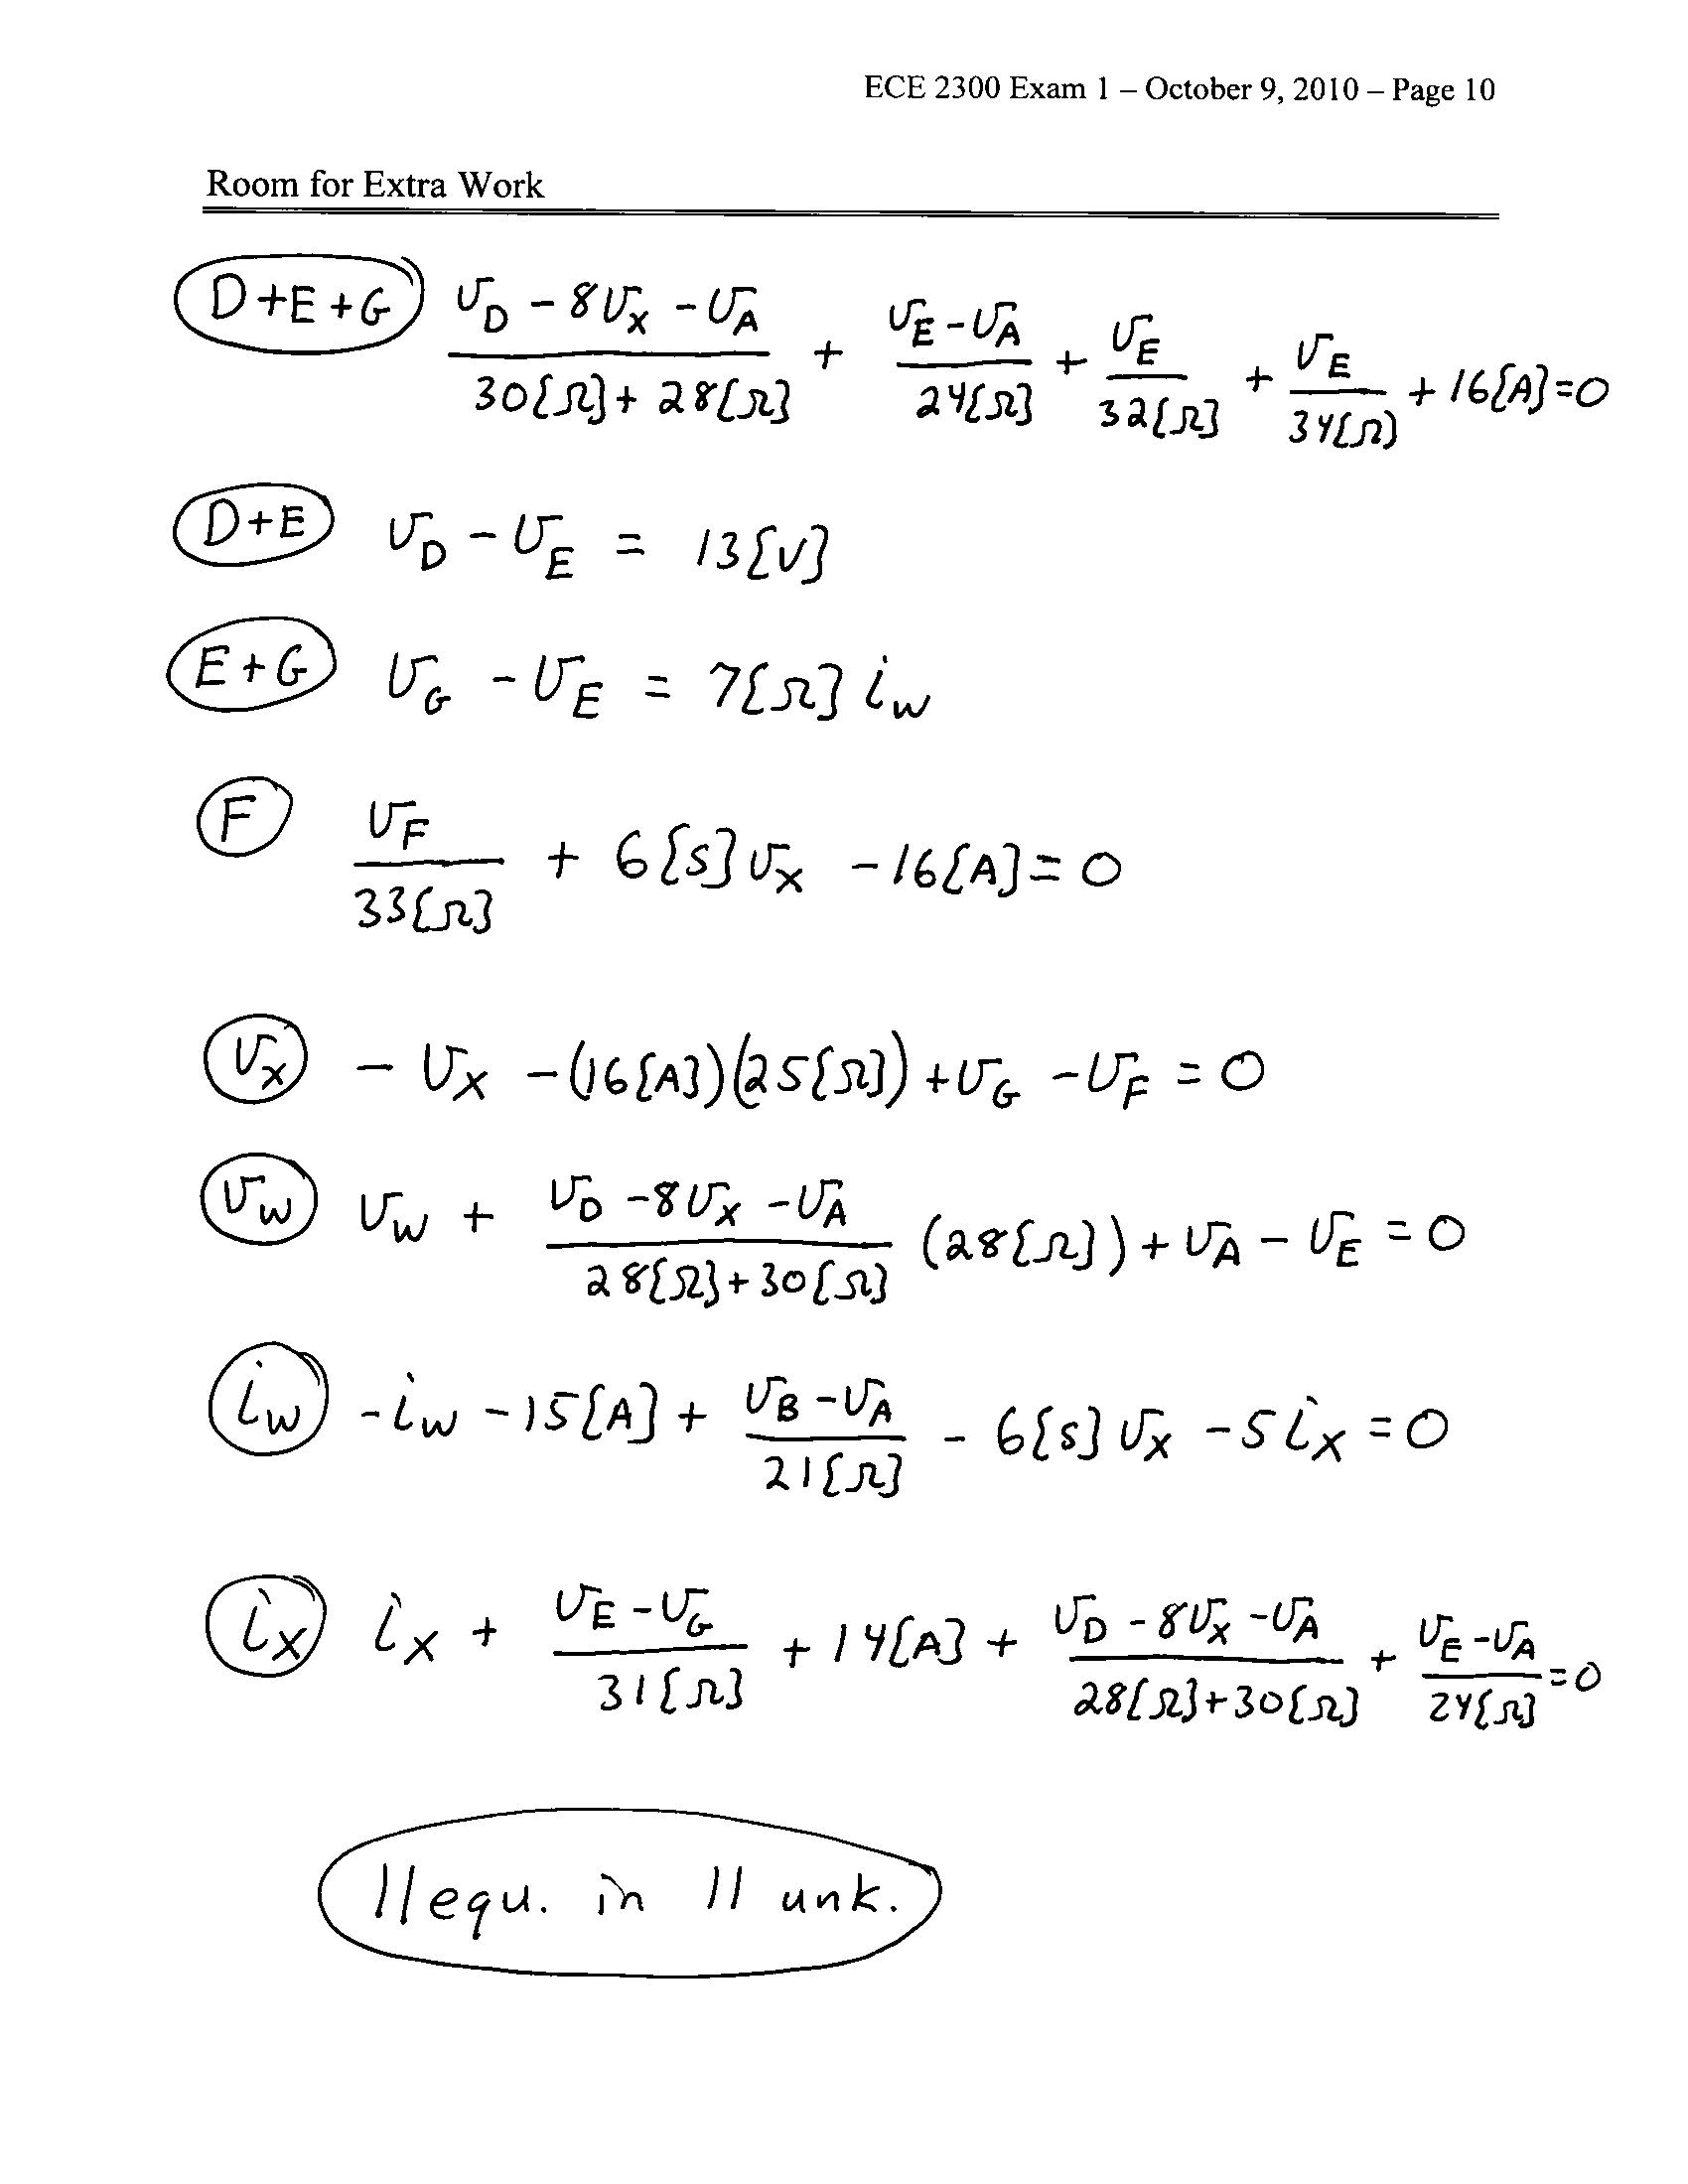 ECE 2300 Exam 1 – October 9, 2010 – Page 10
Room for Extra Work
D+E+G (v_D - 8v_x - v_A)/(30[Ω] + 28[Ω]) + (v_E - v_A)/(24[Ω]) + v_E/(32[Ω]) + v_E/(34[Ω]) + 16[A] = 0
D+E v_D - v_E = 13[V]
E+G v_G - v_E = 7[Ω] i_w
F v_F/(33[Ω]) + 6[S] v_x - 16[A] = 0
v_x - v_x - (16[A])(25[Ω]) + v_G - v_F = 0
v_w v_w + (v_D - 8v_x - v_A)/(28[Ω] + 30[Ω]) (28[Ω]) + v_A - v_E = 0
i_w - i_w - 15[A] + (v_B - v_A)/(21[Ω]) - 6[S] v_x - 5 i_x = 0
i_x i_x + (v_E - v_G)/(31[Ω]) + 14[A] + (v_D - 8v_x - v_A)/(28[Ω] + 30[Ω]) + (v_E - v_A)/(24[Ω]) = 0
11 equ. in 11 unk.